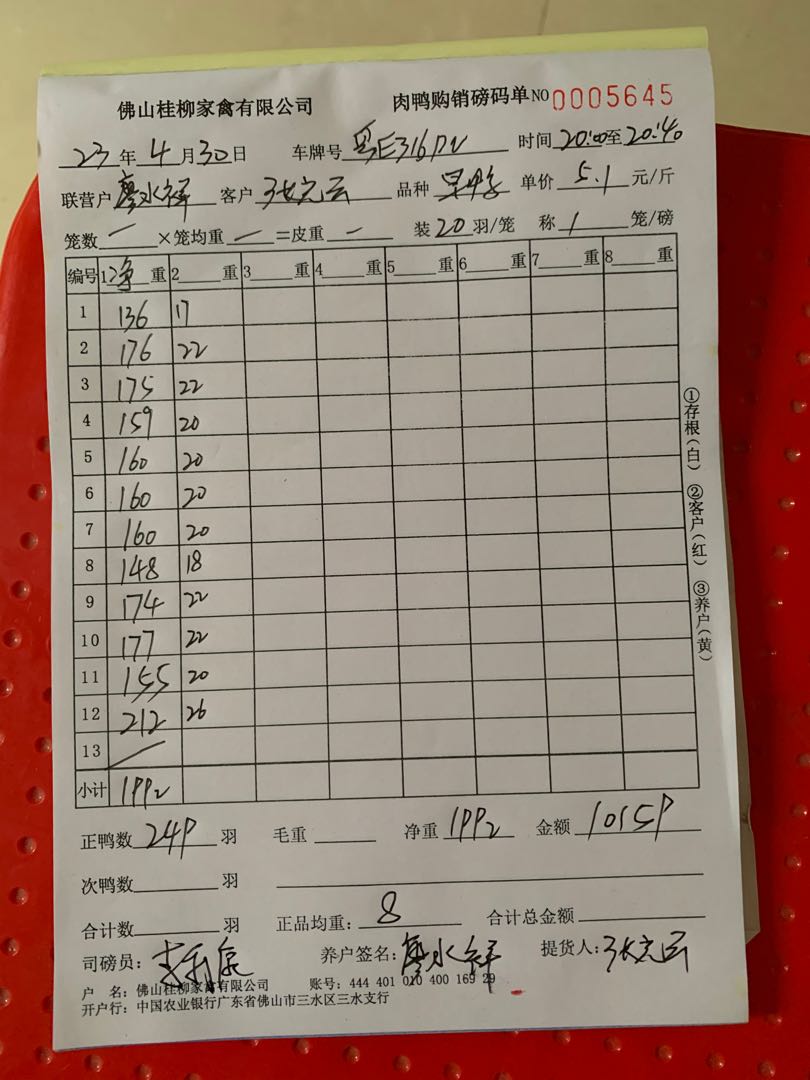 佛山桂柳家禽有限公司 肉鸭购销磅码单 NO 0005645
23年 4月30日 车牌号 粤E316 时间 20:00至20:40
联营户 廖水祥 客户 张元云 品种 单价 5.1 元/斤
笼数 — ×笼均重 — =皮重 — 装 20 羽/笼 称 1 笼/磅
编号 1净重 2 重 3 重 4 重 5 重 6 重 7 重 8 重
1 136 17
2 176 22
3 175 22
4 159 20
5 160 20
6 160 20
7 160 20
8 148 18
9 174 22
10 177 22
11 155 20
12 212 26
13 —
小计 1992
正鸭数 249 羽 毛重 净重 1992 金额 10159
次鸭数 羽
合计数 羽 正品均重: 8 合计总金额
司磅员: 养户签名: 廖水祥 提货人: 张元云
户 名: 佛山桂柳家禽有限公司 账号: 444 401 010 400 169 29
开户行: 中国农业银行广东省佛山市三水区三水支行
①存根(白) ②客户(红) ③养户(黄)